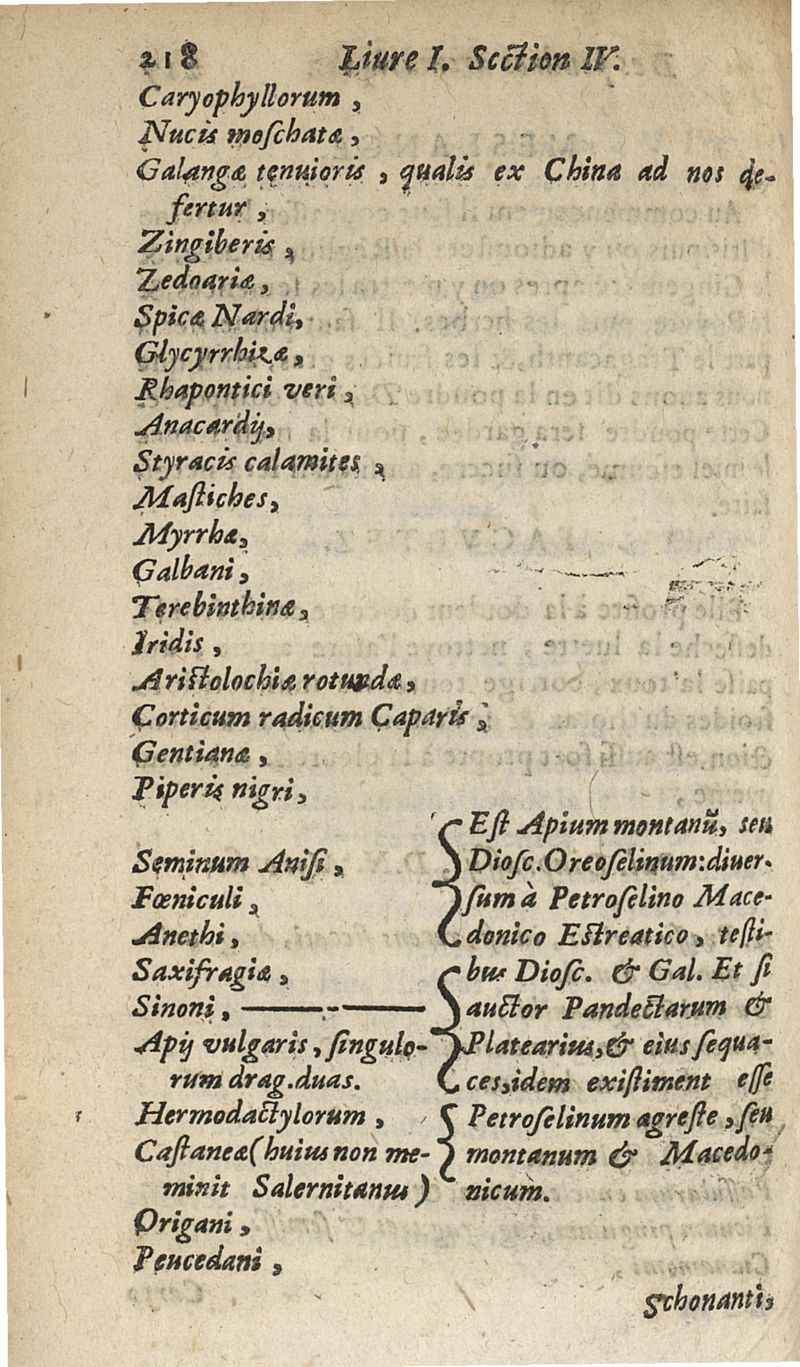 218 Liure I. Section IV.
Caryophyllorum,
Nucis moſchatæ,
Galangæ tenuioris, qualis ex China ad nos de-
fertur,
Zingiberis,
Zedoariæ,
Spicæ Nardi,
Glycyrrhizæ,
Rhapontici veri,
Anacardij,
Styracis calamites,
Maſtiches,
Myrrhæ,
Galbani,
Terebinthinæ,
Iridis,
Ariſtolochiæ rotundæ,
Corticum radicum Caparis,
Gentianæ,
Piperis nigri,
Seminum Aniſi,
Fœniculi,
Anethi,
Saxifragiæ,
Sinoni,
Apij vulgaris, ſingulo-
rum drag.duas.
Hermodactylorum,
Caſtaneæ (huius non me-
minit Salernitanus)
Origani,
Peucedani,
Eſt Apium montanũ, seu
Dioſc. Oreoſelinum: diuer-
ſum à Petroſelino Mace-
donico Eſtreatico, teſti-
bus Dioſc. & Gal. Et ſi
auctor Pandectarum &
Platearius, & eius ſequa-
ces, idem exiſtiment eſſe
Petroſelinum agreſte, ſeu
montanum & Macedo-
nicum.
Schonanti,